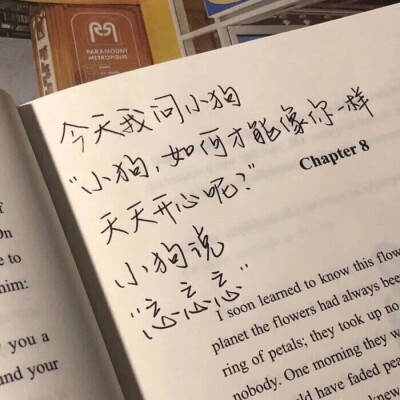 PARAMOUNT
今天我问小狗
"小狗,如何才能像你一样
天天开心呢?"
小狗说
"忘忘忘"
On
e to
him:
you a
nd your
Chapter 8
I soon learned to know this flow
planet the flowers had always bee
ring of petals; they took up no
nobody. One morning they w
ould have faded pea
knew